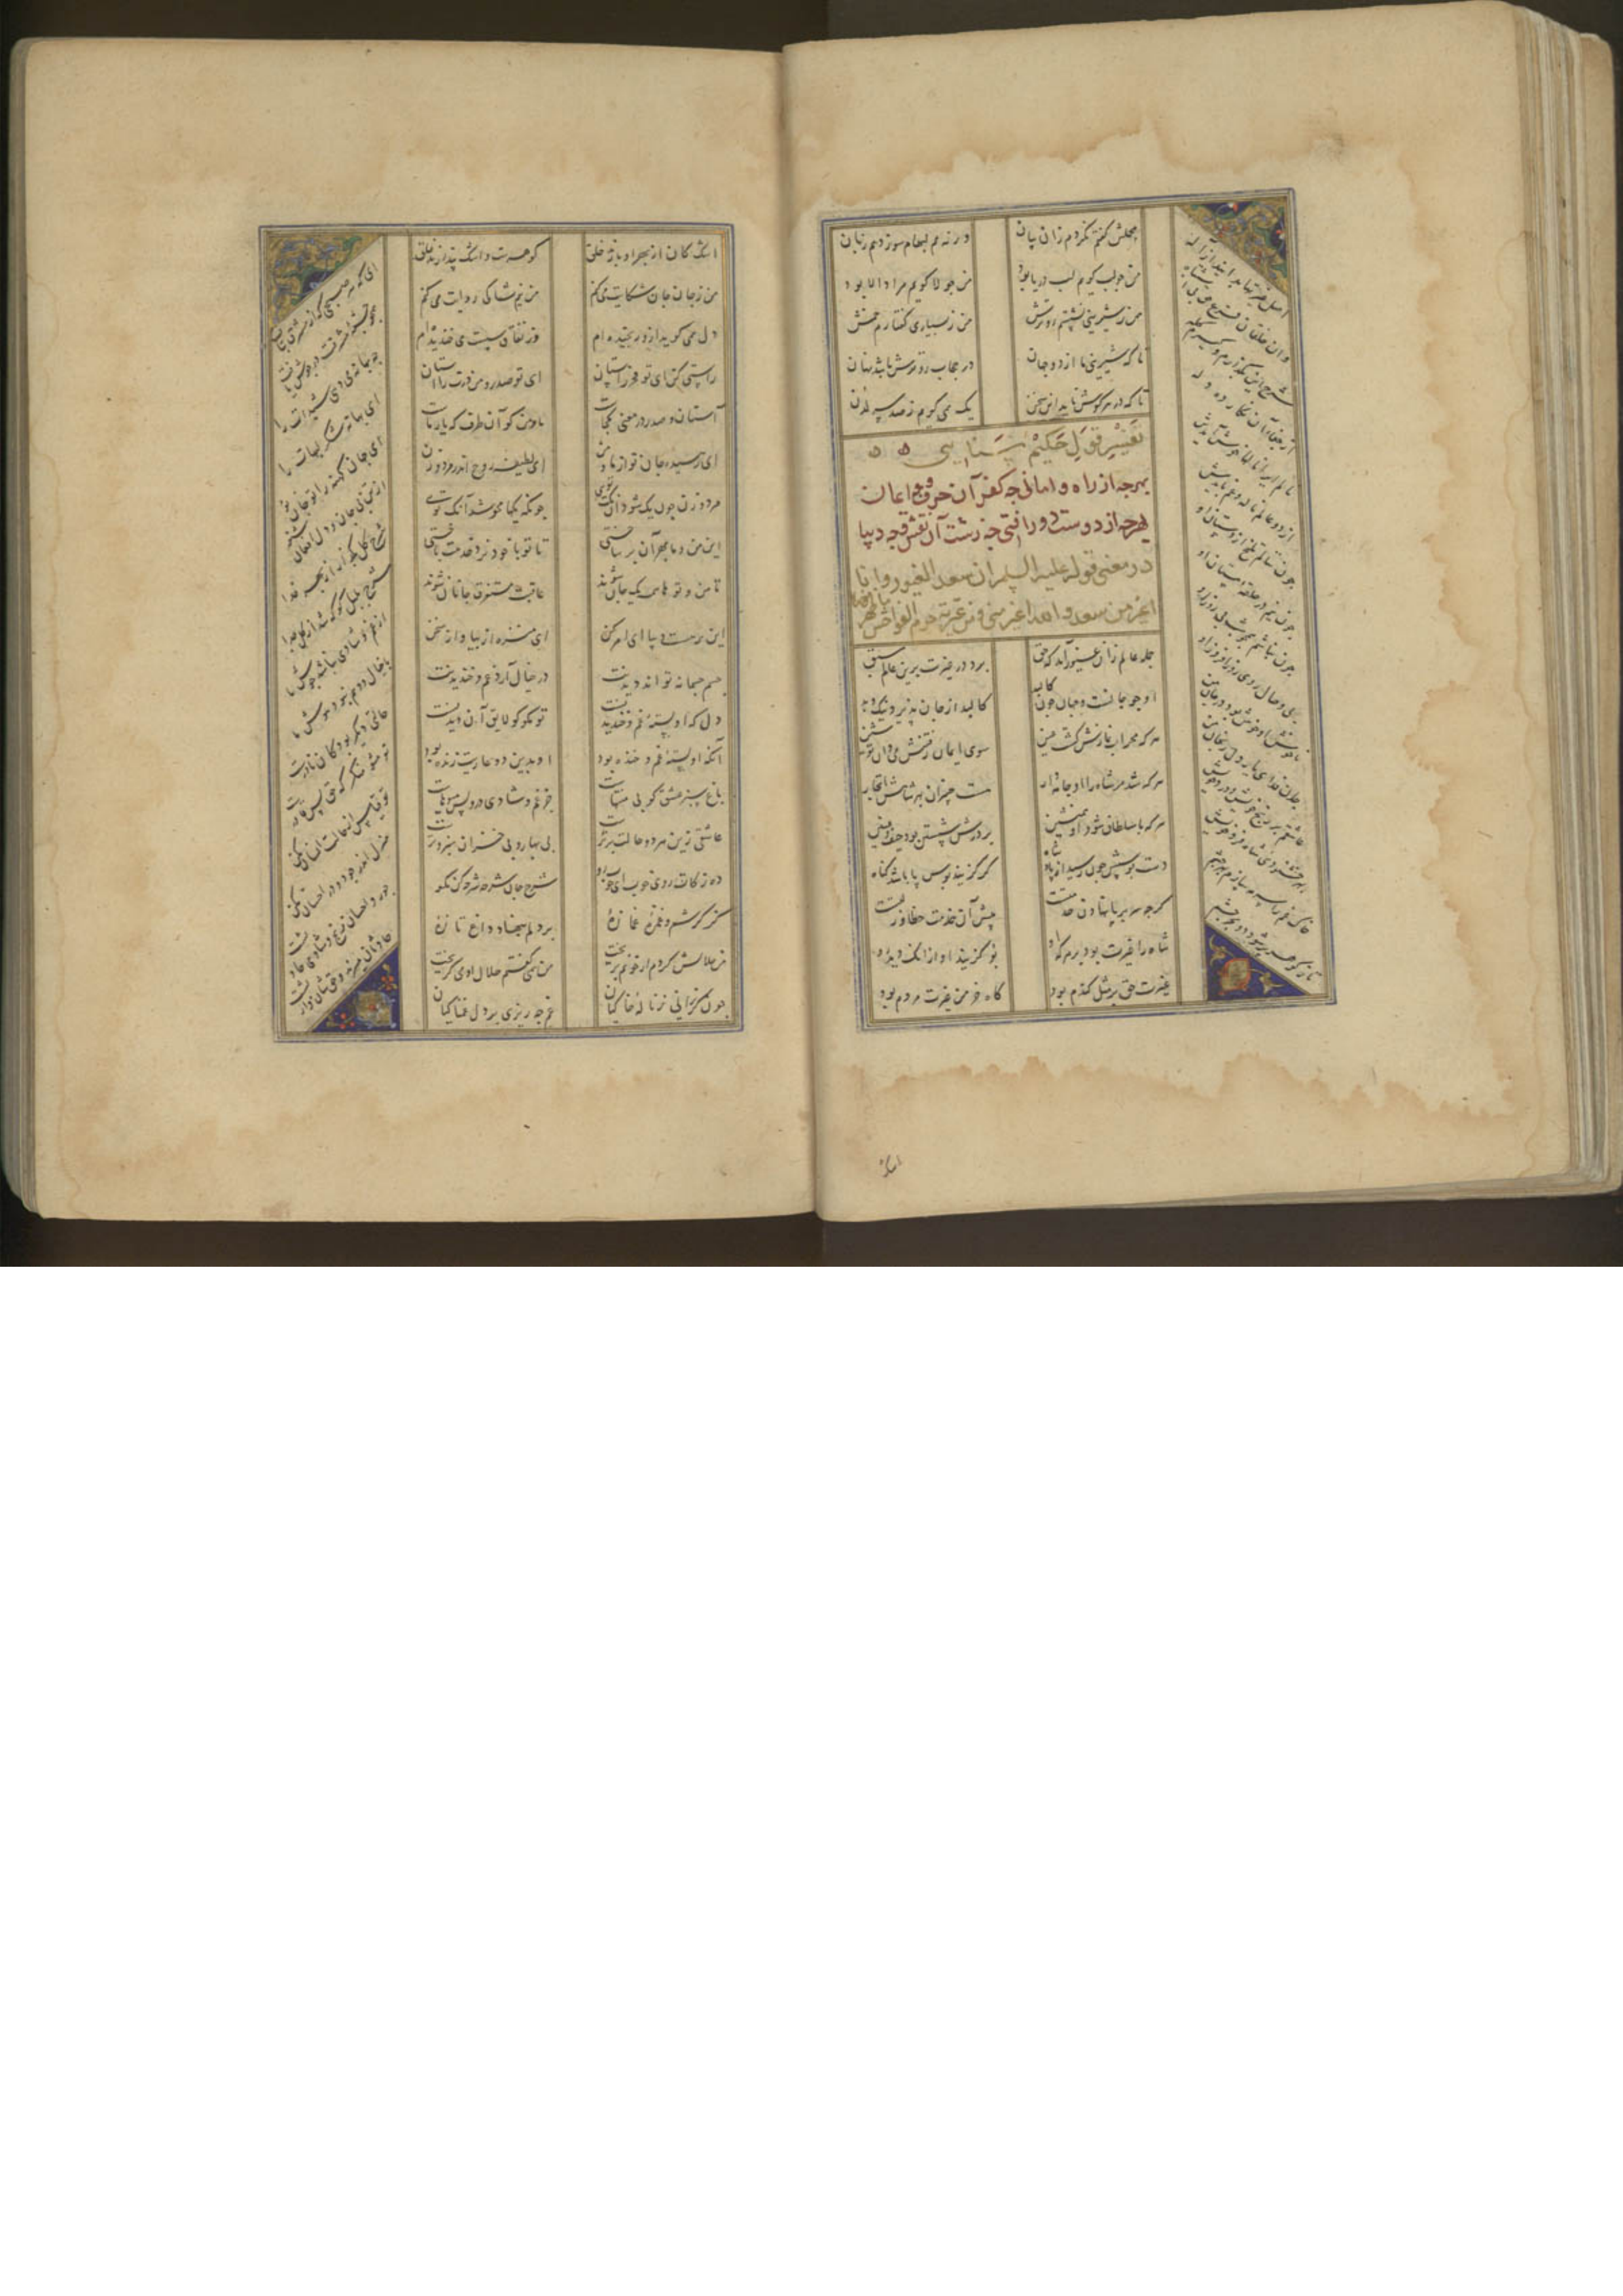 مجملش گفتم نکردم زان بیان
ورنه هم لبها بسوزد هم زبان
من چو لب گویم لب دریا بود
من چو لا گویم مراد الا بود
من ز شیرینی نشستم رو ترش
من ز بسیاری گفتارم خمش
تا که شیرینی ما از دو جهان
در حجاب رو ترش باشد نهان
تا که در هر گوش ناید این سخن
یک می گویم ز صد سر لدن
تفسیر قول حکیم سنایی
بهرچه از راه وامانی چه کفر آن حرف و چه ایمان
بهرچه از دوست دور افتی چه زشت آن نقش و چه دیبا
در معنی قوله علیه السلم ان سعد الغیور و انا
اغیر من سعد والله اغیر منی و من غیرته حرم الفواحش
جمله عالم زان غیور آمد که حق
برد در غیرت برین عالم سبق
او چو جانست و جهان چون کالبد
کالبد از جان پذیرد نیک و بد
هر که محراب نمازش گشت عین
سوی ایمان رفتنش می دان تو شین
هر که شد مر شاه را او جامه دار
هست خسران بهر شاهش اتجار
هر که با سلطان شود او همنشین
بر درش شستن بود حیف و غبین
دست بوسش چون رسید از پادشاه
گر گزیند بوس پا باشد گناه
گرچه سر بر پا نهادن خدمتست
پیش آن خدمت خطا و زلتست
شاه را غیرت بود بر هر که او
بو گزیند او از آنک دید رو
غیرت حق بر مثل گندم بود
کاه خرمن غیرت مردم بود
اصل غیرتها بدانید از اله
وان خلقان فرع حق بی اشتباه
شرح این بگذارم و گیرم گله
از جفای آن نگار ده دله
نالم ایرا نالها خوش آیدش
از دو عالم ناله و غم بایدش
چون ننالم تلخ از دستان او
چون نیم در حلقه مستان او
چون نباشم همچو شب بی روز او
بی وصال روی روز افروز او
ناخوش او خوش بود در جان من
جان فدای یار دل رنجان من
عاشقم بر رنج خویش و درد خویش
بهر خشنودی شاه فرد خویش
خاک غم را سرمه سازم بهر چشم
تا ز گوهر پر شود دو بحر چشم
اشک
اشک کان از بهر او بارند خلق
گوهرست و اشک پندارند خلق
من ز جان جان شکایت می کنم
من نیم شاکی روایت می کنم
دل می گوید از و رنجیده ام
وز نفاق سست می خندیده ام
راستی کن ای تو فخر راستان
ای تو صدر و من درت را آستان
آستان و صدر در معنی کجاست
ما و من کو آن طرف که یار ماست
ای رهیده جان تو از ما و من
ای لطیفه روح اندر مرد و زن
مرد و زن چون یک شود آن یک توی
چونکه یکها محو شد آنک توی
این من و ما بهر آن بر ساختی
تا تو با خود نرد خدمت باختی
تا من و توها همه یک جان شوند
عاقبت مستغرق جانان شوند
این همه هست و بیا ای امر کن
ای منزه از بیا و از سخن
جسم جسمانه تواند دیدنت
در خیال آرد غم و خندیدنت
دل که او بسته غم و خندیدنست
تو مگو کو لایق آن دیدنست
آنکه او بسته غم و خنده بود
او بدین دو عاریت زنده بود
باغ سبز عشق کو بی منتهاست
جز غم و شادی درو بس میوهاست
عاشقی زین هر دو حالت برترست
بی بهار و بی خزان سبز و ترست
ده زکات روی خوب ای خوب رو
شرح جان شرحه شرحه کن بگو
کز کرشم و غمزه غمازه
بر دلم بنهاد داغ تازه
من حلالش کردم ار خونم بریخت
من همی گفتم حلال او می گریخت
چون گریزانی ز ناله خاکیان
غم چه ریزی بر دل غمناکیان
ای که هر صبحی که از مشرق بتافت
همچو چشمه مشرقت در جوش یافت
چه بهانه می دهی شیدات را
ای بهانه شکر لبهات را
ای جهان کهنه را تو جان نو
از تن بی جان و دل افغان شنو
شرح گل بگذار از بهر خدا
شرح بلبل گو که شد از گل جدا
از غم و شادی نباشد جوش ما
با خیال و وهم نبود هوش ما
حالتی دیگر بود کان نادرست
تو مشو منکر که حق بس قادرست
تو قیاس از حالت انسان مکن
منزل اندر جور و در احسان مکن
جور و احسان رنج و شادی حادثست
حادثان میرند و حقشان وارثست